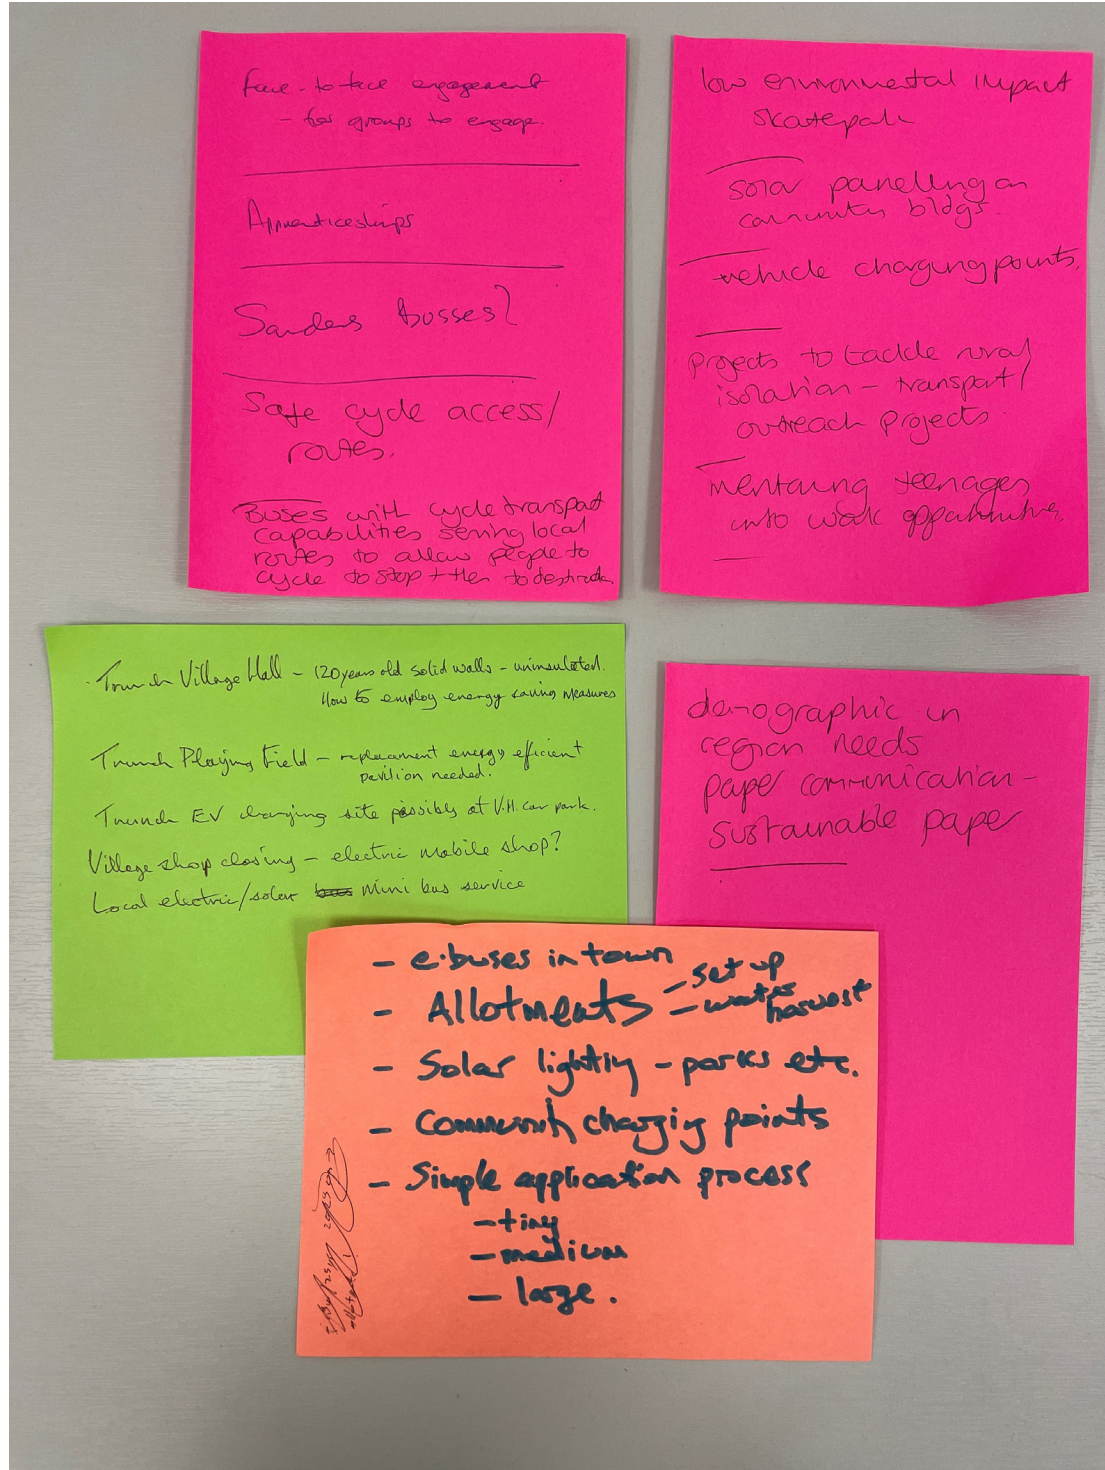 Face-to-face engagement
- for groups to engage.
Apprenticeships
Sanders Busses?
Safe cycle access/
routes.
Buses with cycle transport
capabilities serving local
routes to allow people to
cycle to stop + then to
low environmental impact
skatepark
solar panelling on
community bldgs.
vehicle charging points.
projects to tackle rural
isolation - transport/
outreach projects
mentoring teenages
into work opportunities
Trunch Village Hall - 120 years old solid walls - uninsulated.
How to employ energy saving measures
Trunch Playing Field - replacement energy efficient
pavilion needed.
Trunch EV charging site possibly at V.H. car park.
Village shop closing - electric mobile shop?
Local electric/solar mini bus service
demographic in
region needs
paper communication -
sustainable paper
- e.buses in town
- Allotments - set up
- water harvest
- Solar lighting - parks etc.
- Community charging points
- Simple application process
- tiny
- medium
- large.